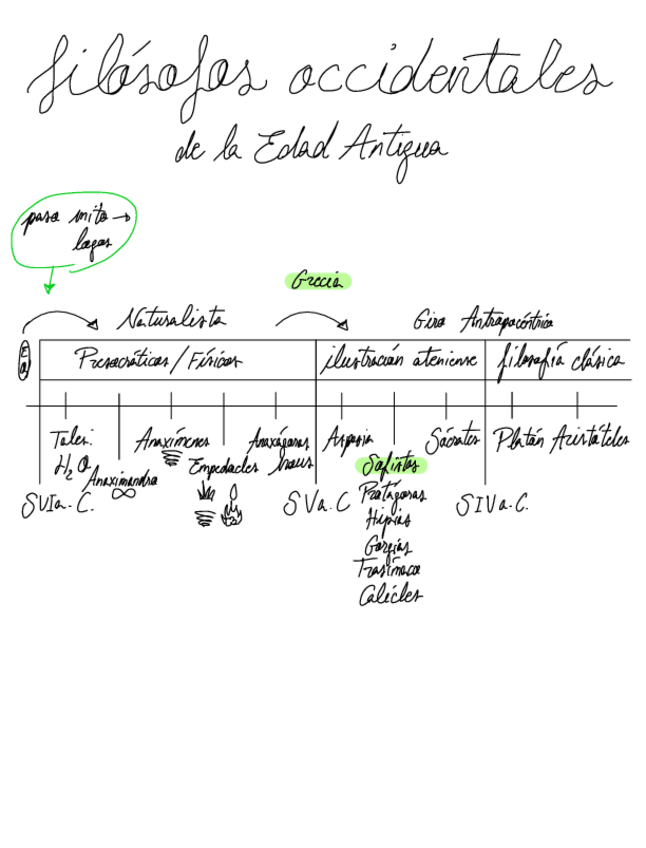 filósofos occidentales
de la Edad Antigua
paso mito →
logos
Grecia
Naturalista
Giro Antropocéntrico
Presocráticos / Físicos
ilustración ateniense
filosofía clásica
Tales:
H₂O
Anaximandro
∞
Anaxímenes
Empedocles
Anaxágoras
nous
Aspasia
Sofistas
Protágoras
Hipias
Gorgias
Trasímaco
Calicles
Sócrates
Platón
Aristóteles
SVIa.C.
SVa.C
SIVa.C.